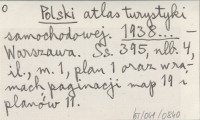 o
Polski atlas turystyki
samochodowej. 1938...-
Warszawa. Ss. 395, nlb. 4,
il., m. 1, plan 1 oraz w ra-
mach paginacji map 19 i
planów 11.